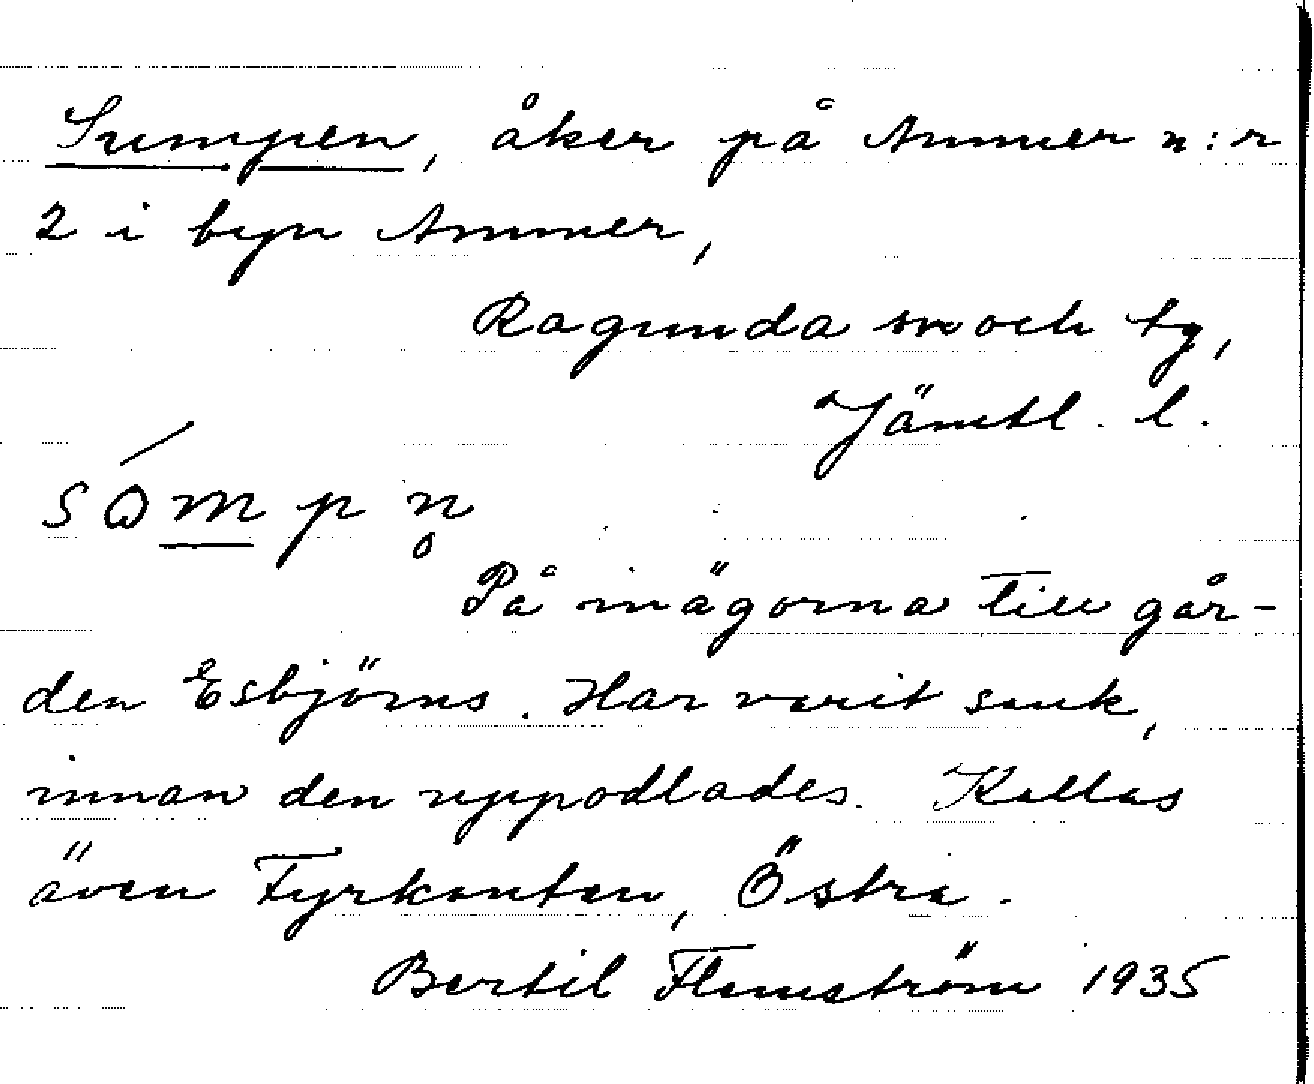 Sumpen, åker på Ammer n:r
2 i byn Ammer,
Ragunda sn och tg,
Jämtl. l.
På inägorna till går-
den Esbjörns. Har varit sank,
innan den uppodlades. Kallas
även Fyrkanten, Östra.
Bertil Flemström 1935